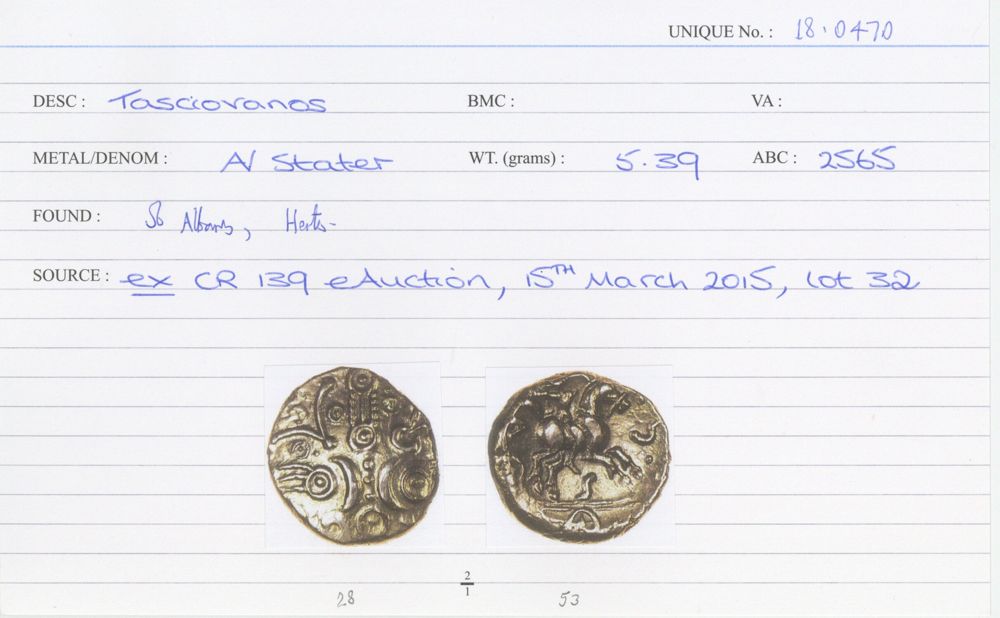 UNIQUE No. : 18.0470
DESC : Tasciovanos BMC : VA :
METAL/DENOM : AV Stater WT. (grams) : 5.39 ABC : 2565
FOUND : St Albans, Herts.
SOURCE : ex CR 139 eAuction, 15TH March 2015, lot 32
2
1
28 53